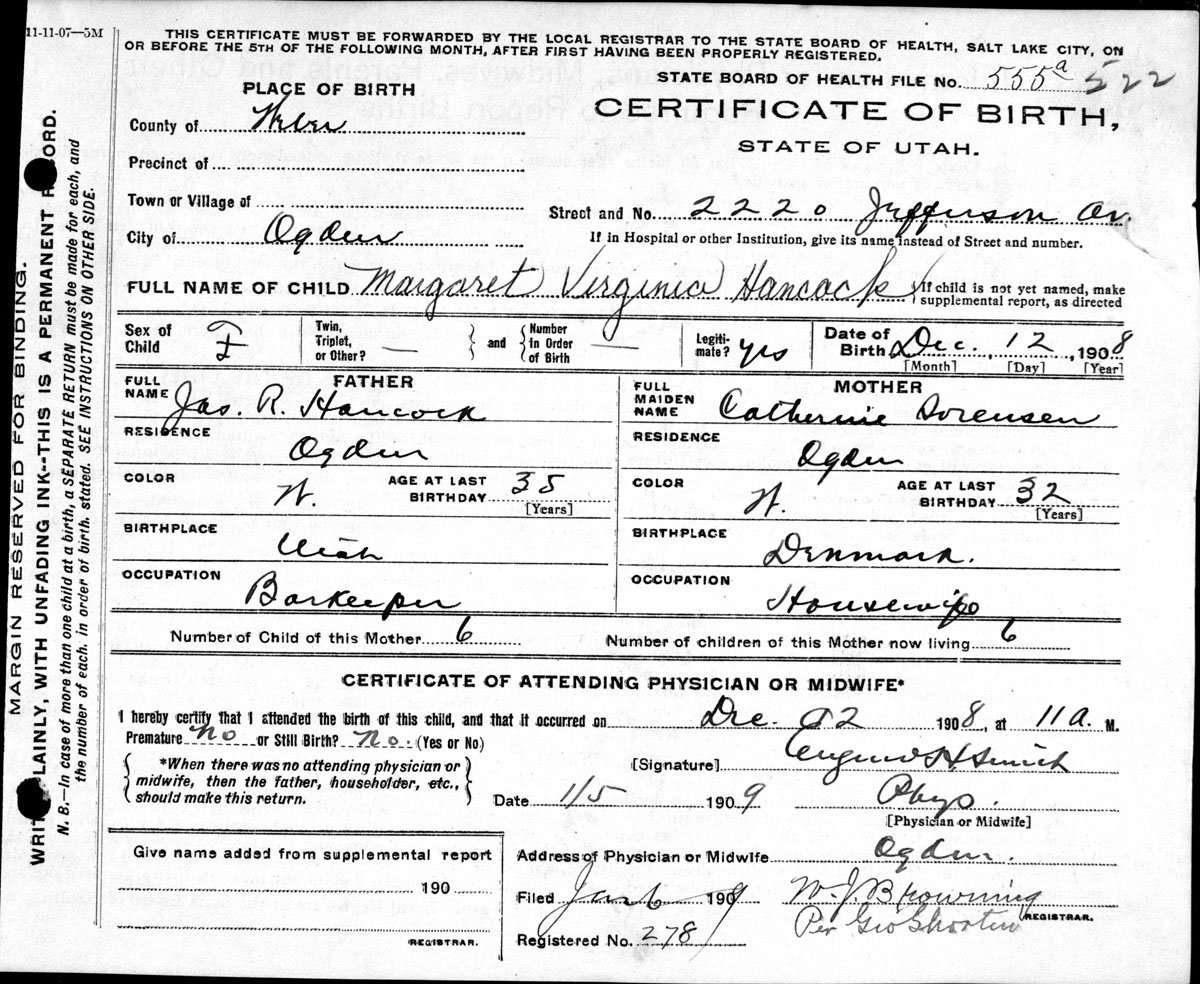 11-11-07—5M
THIS CERTIFICATE MUST BE FORWARDED BY THE LOCAL REGISTRAR TO THE STATE BOARD OF HEALTH, SALT LAKE CITY, ON
OR BEFORE THE 5TH OF THE FOLLOWING MONTH, AFTER FIRST HAVING BEEN PROPERLY REGISTERED.
STATE BOARD OF HEALTH FILE No. 555a 522
PLACE OF BIRTH
CERTIFICATE OF BIRTH,
STATE OF UTAH.
County of Weber
Precinct of
Town or Village of
Street and No. 2220 Jefferson Av.
City of Ogden
If in Hospital or other Institution, give its name instead of Street and number.
FULL NAME OF CHILD Margaret Virginia Hancock
If child is not yet named, make
supplemental report, as directed
Sex of Child F
Twin, Triplet, or Other? —
and
Number in Order of Birth —
Legiti-mate? yes
Date of Birth Dec. 12, 1908
[Month] [Day] [Year]
FATHER
FULL NAME Jas. R. Hancock
MOTHER
FULL MAIDEN NAME Catherine Sorensen
RESIDENCE Ogden
RESIDENCE Ogden
COLOR W. AGE AT LAST BIRTHDAY 35 [Years]
COLOR W. AGE AT LAST BIRTHDAY 32 [Years]
BIRTHPLACE Utah
BIRTHPLACE Denmark.
OCCUPATION Barkeeper
OCCUPATION Housewife
Number of Child of this Mother 6
Number of children of this Mother now living 6
CERTIFICATE OF ATTENDING PHYSICIAN OR MIDWIFE*
I hereby certify that I attended the birth of this child, and that it occurred on Dec. 12 1908, at 11 a. M.
Premature No or Still Birth? No. (Yes or No)
*When there was no attending physician or
midwife, then the father, householder, etc.,
should make this return.
[Signature] Eugene H Smith
Date 1/5 1909
Phys.
[Physician or Midwife]
Give name added from supplemental report
190
REGISTRAR.
Address of Physician or Midwife Ogden.
Filed Jan 6 1909 W. J. Browning
REGISTRAR.
Per Geo
Registered No. 278
MARGIN RESERVED FOR BINDING.
WRIT LAINLY, WITH UNFADING INK--THIS IS A PERMANENT R ORD.
N. B.—In case of more than one child at a birth, a SEPARATE RETURN must be made for each, and
the number of each. in order of birth. stated. SEE INSTRUCTIONS ON OTHER SIDE.